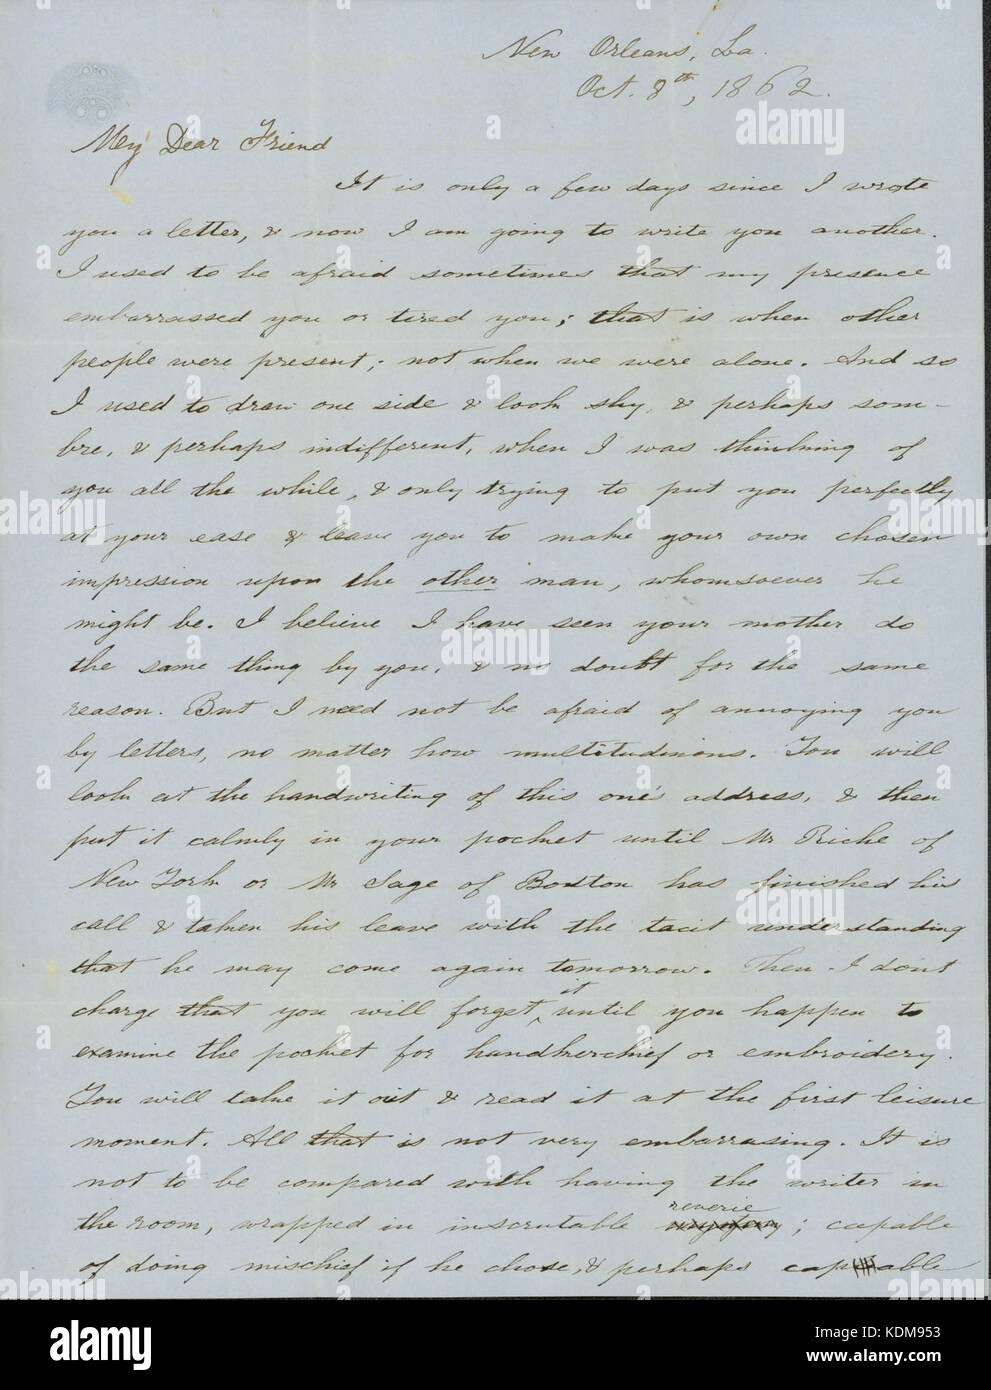 New Orleans, La.
Oct. 8th, 1862.
My Dear Friend
It is only a few days since I wrote
you a letter, & now I am going to write you another.
I used to be afraid sometimes that my presence
embarrassed you or tired you; that is when other
people were present; not when we were alone. And so
I used to draw one side & look shy, & perhaps som-
bre, & perhaps indifferent, when I was thinking of
you all the while, & only trying to put you perfectly
at your ease & leave you to make your own chosen
impression upon the other man, whomsoever he
might be. I believe I have seen your mother do
the same thing by you, & no doubt for the same
reason. But I need not be afraid of annoying you
by letters, no matter how multitudinous. You will
look at the handwriting of this one's address, & then
put it calmly in your pocket until Mr Riche of
New York or Mr Sage of Boston has finished his
call & taken his leave with the tacit understanding
that he may come again tomorrow. Then I dont
charge that you will forget it until you happen to
examine the pocket for handkerchief or embroidery.
You will take it out & read it at the first leisure
moment. All that is not very embarrasing. It is
not to be compared with having the writer in
the room, wrapped in inscrutable reverie; capable
of doing mischief if he chose, & perhaps capable
alamy
Image ID: KDM953
www.alamy.com